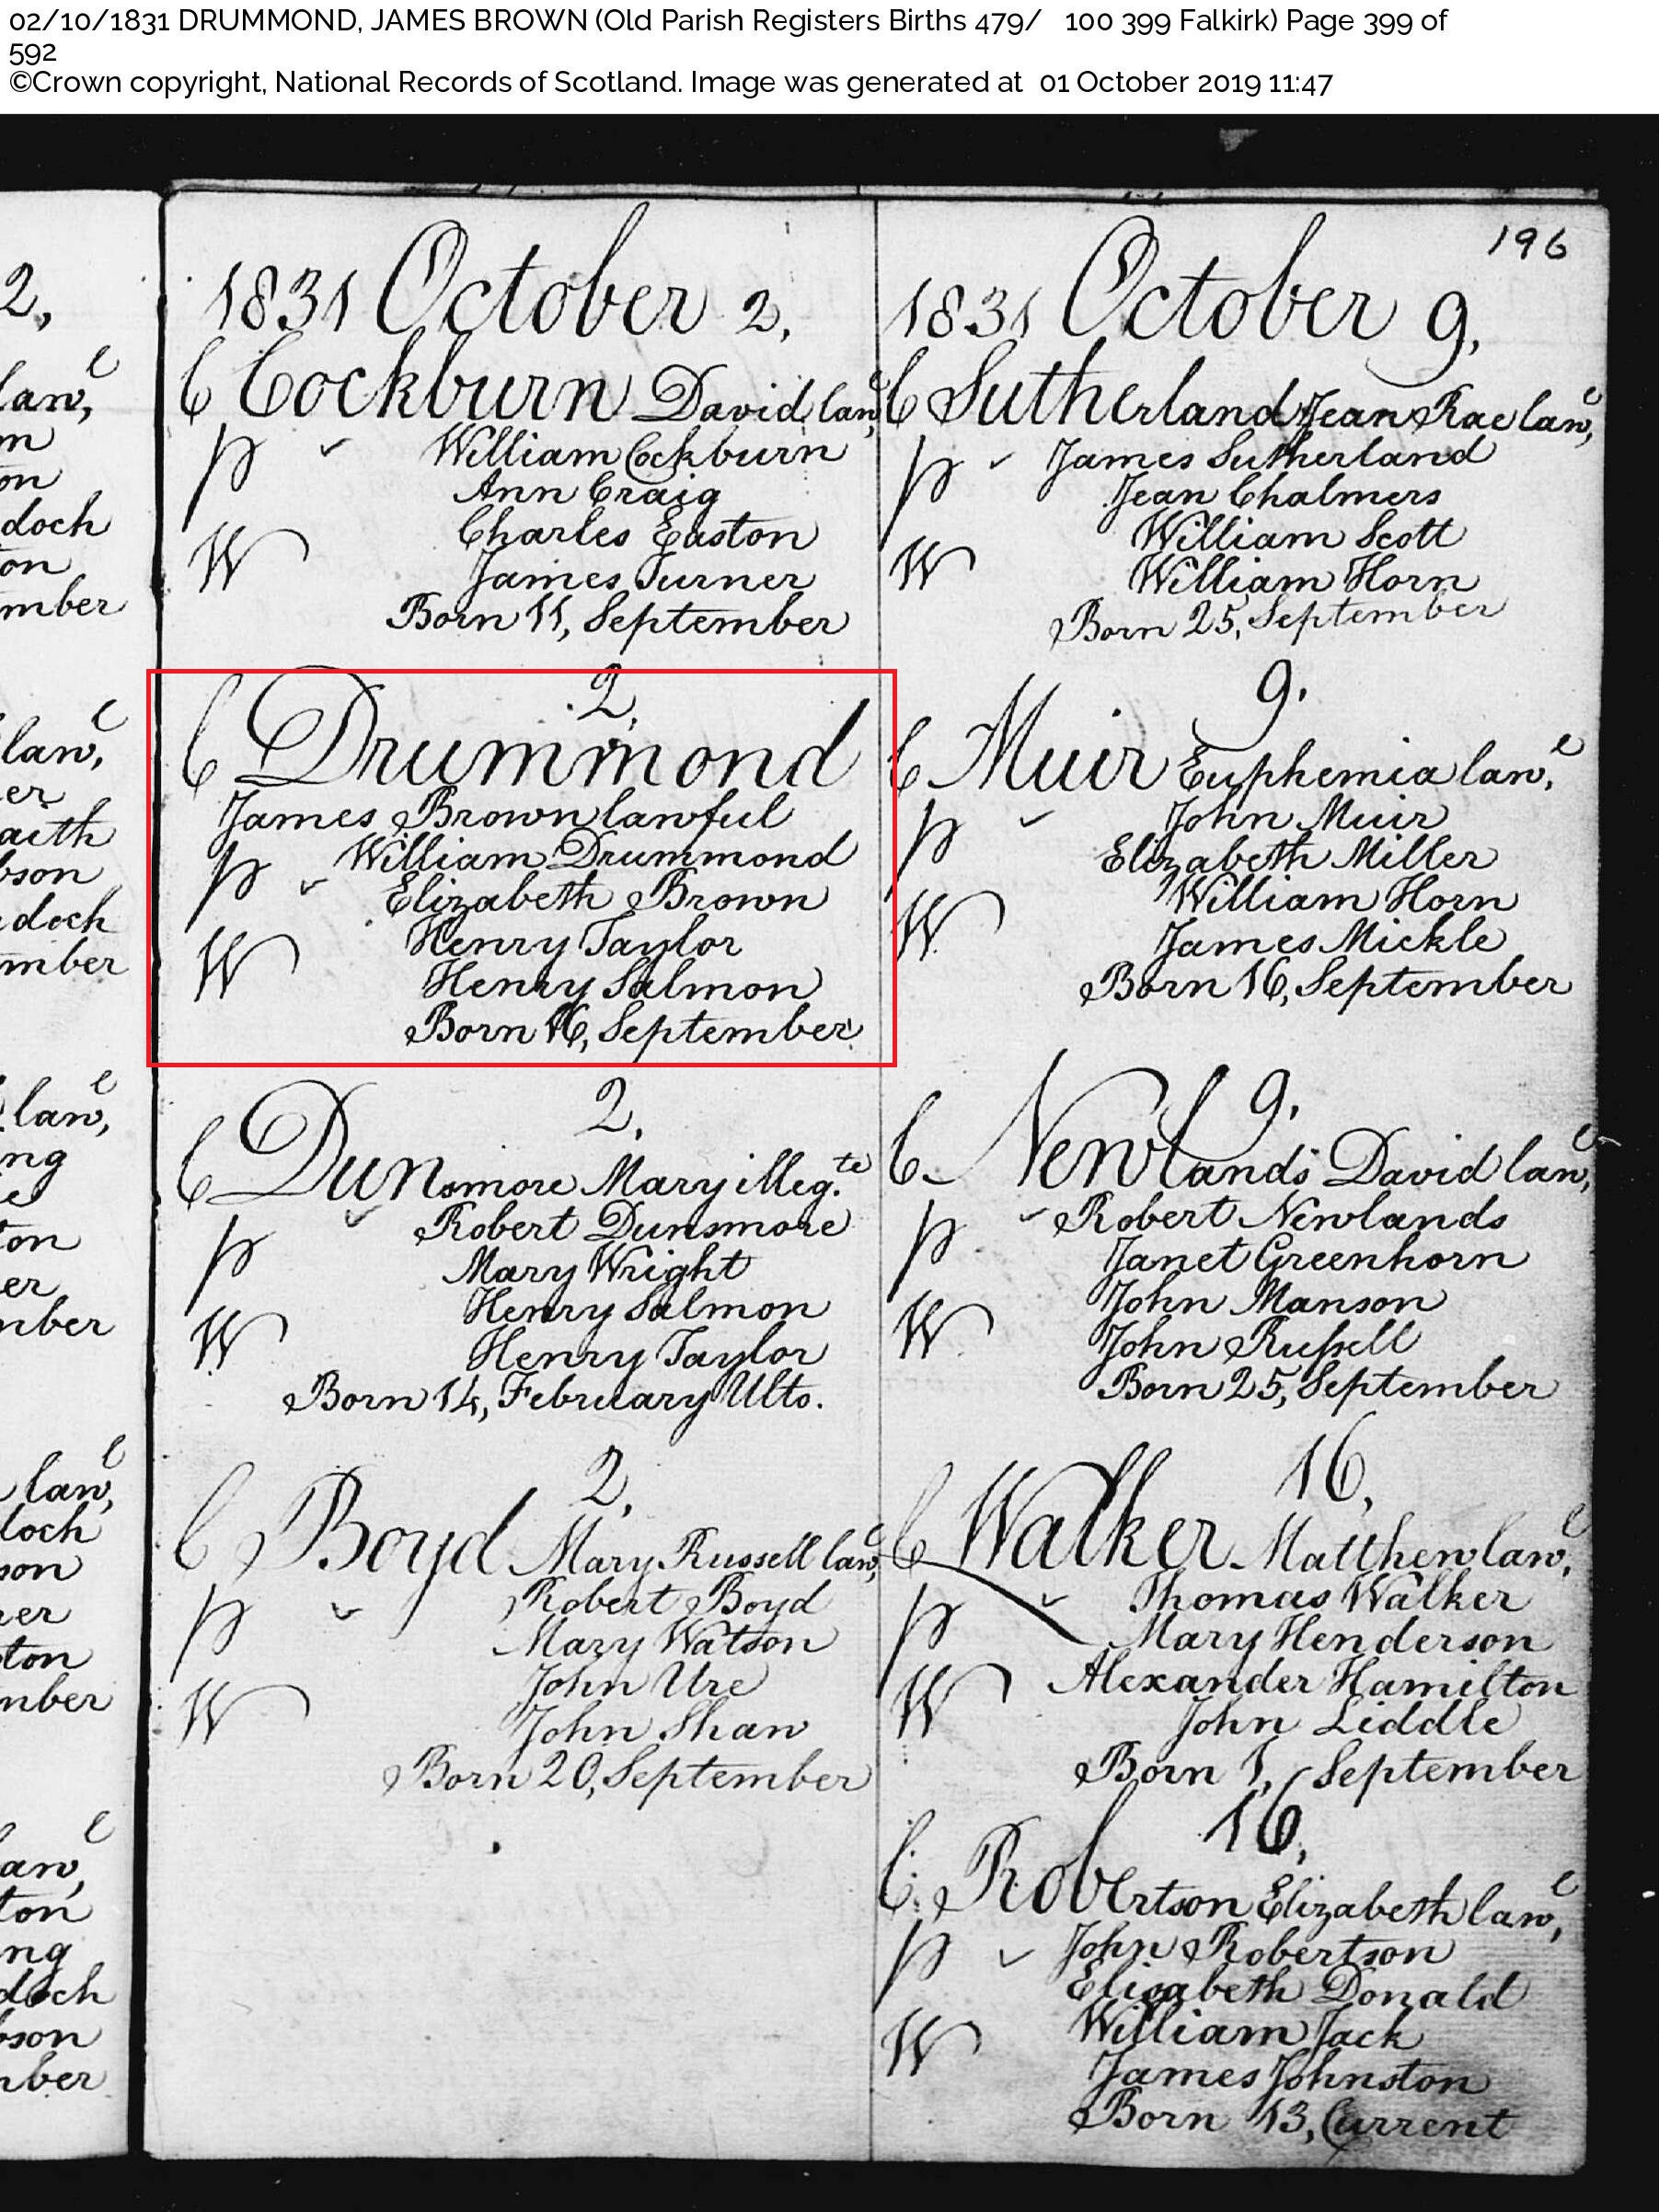 02/10/1831 DRUMMOND, JAMES BROWN (Old Parish Registers Births 479/ 100 399 Falkirk) Page 399 of
592
©Crown copyright, National Records of Scotland. Image was generated at 01 October 2019 11:47
2,
law,e
m
on
doch
on
mber
law,e
er
aith
bson
doch
mber
law,e
ng
e
ton
er
mber
law,e
loch
son
ner
ton
mber
law,e
ton
ng
doch
bson
mber
1831 October 2,
C Cockburn David law,e
p William Cockburn
Ann Craig
Charles Easton
W James Turner
Born 11, September
2,
C Drummond
James Brown lawful
p William Drummond
Elizabeth Brown
Henry Taylor
W Henry Salmon
Born 16, September
2,
C Dunsmore Mary illeg.te
Robert Dunsmore
p Mary Wright
Henry Salmon
W Henry Taylor
Born 14, February Ulto.
2,
C Boyd Mary Russell law,e
p Robert Boyd
Mary Watson
John Ure
W John Shaw
Born 20, September
196
1831 October 9,
C Sutherland Jean Rae law,e
p James Sutherland
Jean Chalmers
William Scott
W William Horn
Born 25, September
9.
C Muir Euphemia law,e
p John Muir
Elizabeth Miller
William Horn
W James Mickle
Born 16, September
9,
C Newlands David law,e
p Robert Newlands
Janet Greenhorn
John Manson
W John Russell
Born 25, September
16,
C Walker Matthew law,e
p Thomas Walker
Mary Henderson
Alexander Hamilton
W John Liddle
Born 1, September
16,
C Robertson Elizabeth law,e
p John Robertson
Elizabeth Donald
William Jack
W James Johnston
Born 13, Current